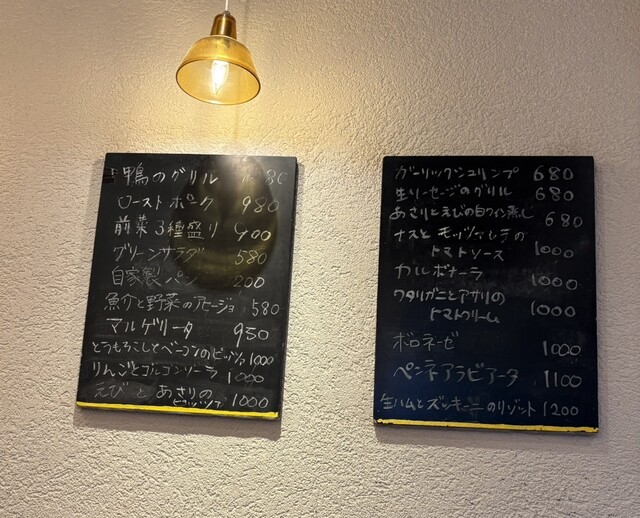 鴨のグリル
ローストポーク 980
前菜3種盛り 900
グリーンサラダ 580
自家製パン 200
魚介と野菜のアヒージョ 580
マルゲリータ 950
とうもろこしとベーコンのピッツァ 1000
りんごとゴルゴンゾーラ 1000
えびとあさりの
ピッツァ 1000
ガーリックシュリンプ 680
生ソーセージのグリル 680
あさりとえびの白ワイン蒸し 680
ナスとモッツァレラの
トマトソース 1000
カルボナーラ 1000
ワタリガニとアサリの
トマトクリーム 1000
ボロネーゼ 1000
ペンネアラビアータ 1100
生ハムとズッキーニのリゾット 1200